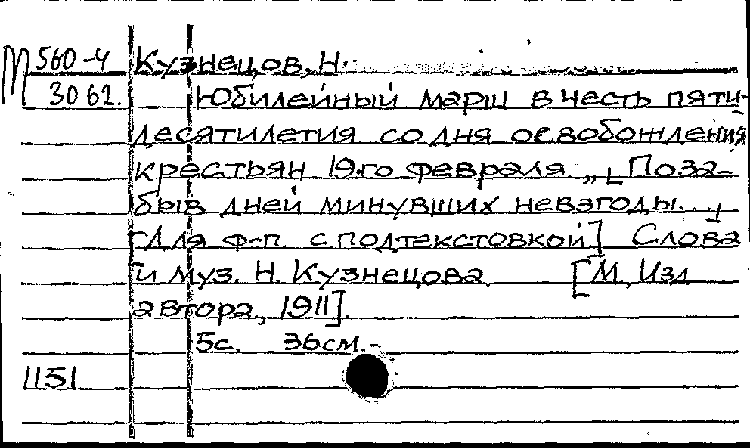 М 560-4 Кузнецов, Н.
3061. Юбилейный марш в честь пяти-
десятилетия со дня освобождения
крестьян 19го февраля „Поза-
быв дней минувших невзгоды..."
[Для ф-п. с подтекстовкой] Слова
и муз. Н. Кузнецова [М., Изд.
автора, 1911].
5с. 36см.-
1151